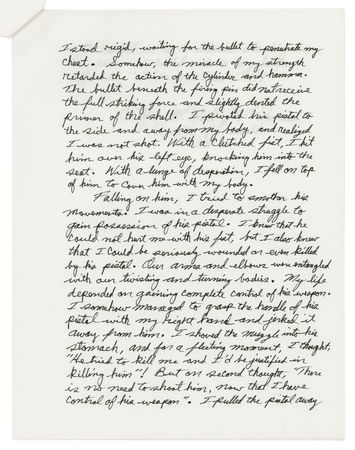 I stood rigid, waiting for the bullet to penetrate my
chest. Somehow, the miracle of my strength
retarded the action of the cylinder and hamma.
The bullet beneath the firing pin did not receive
the full striking force and slightly dented the
primer of the shell. I pivoted his pistol to
the side and away from my body, and realized
I was not shot. With a cletched fist, I hit
him over his left eye, knocking him into the
seat. With a lunge of desperation, I fell on top
of him to cover him with my body.
Falling on him, I tried to smother his
movements! I was in a desperate struggle to
gain possession of his pistol. I knew that he
could not hurt me with his fist, but I also knew
that I could be seriously wounded or even killed
by his pistol. Our arms and elbows were entangled
with our twisting and turning bodies. My life
depended on gaining complete control of his weapon.
I somehow managed to grasp the handle of his
pistol with my right hand and jerked it
away from him. I shoved the muzzle into his
stomach, and for a fleeting moment, I thought,
"He tried to kill me and I'd be justified in
killing him"! But on second thought, "There
is no need to shoot him, now that I have
control of his weapon". I pulled the pistol away